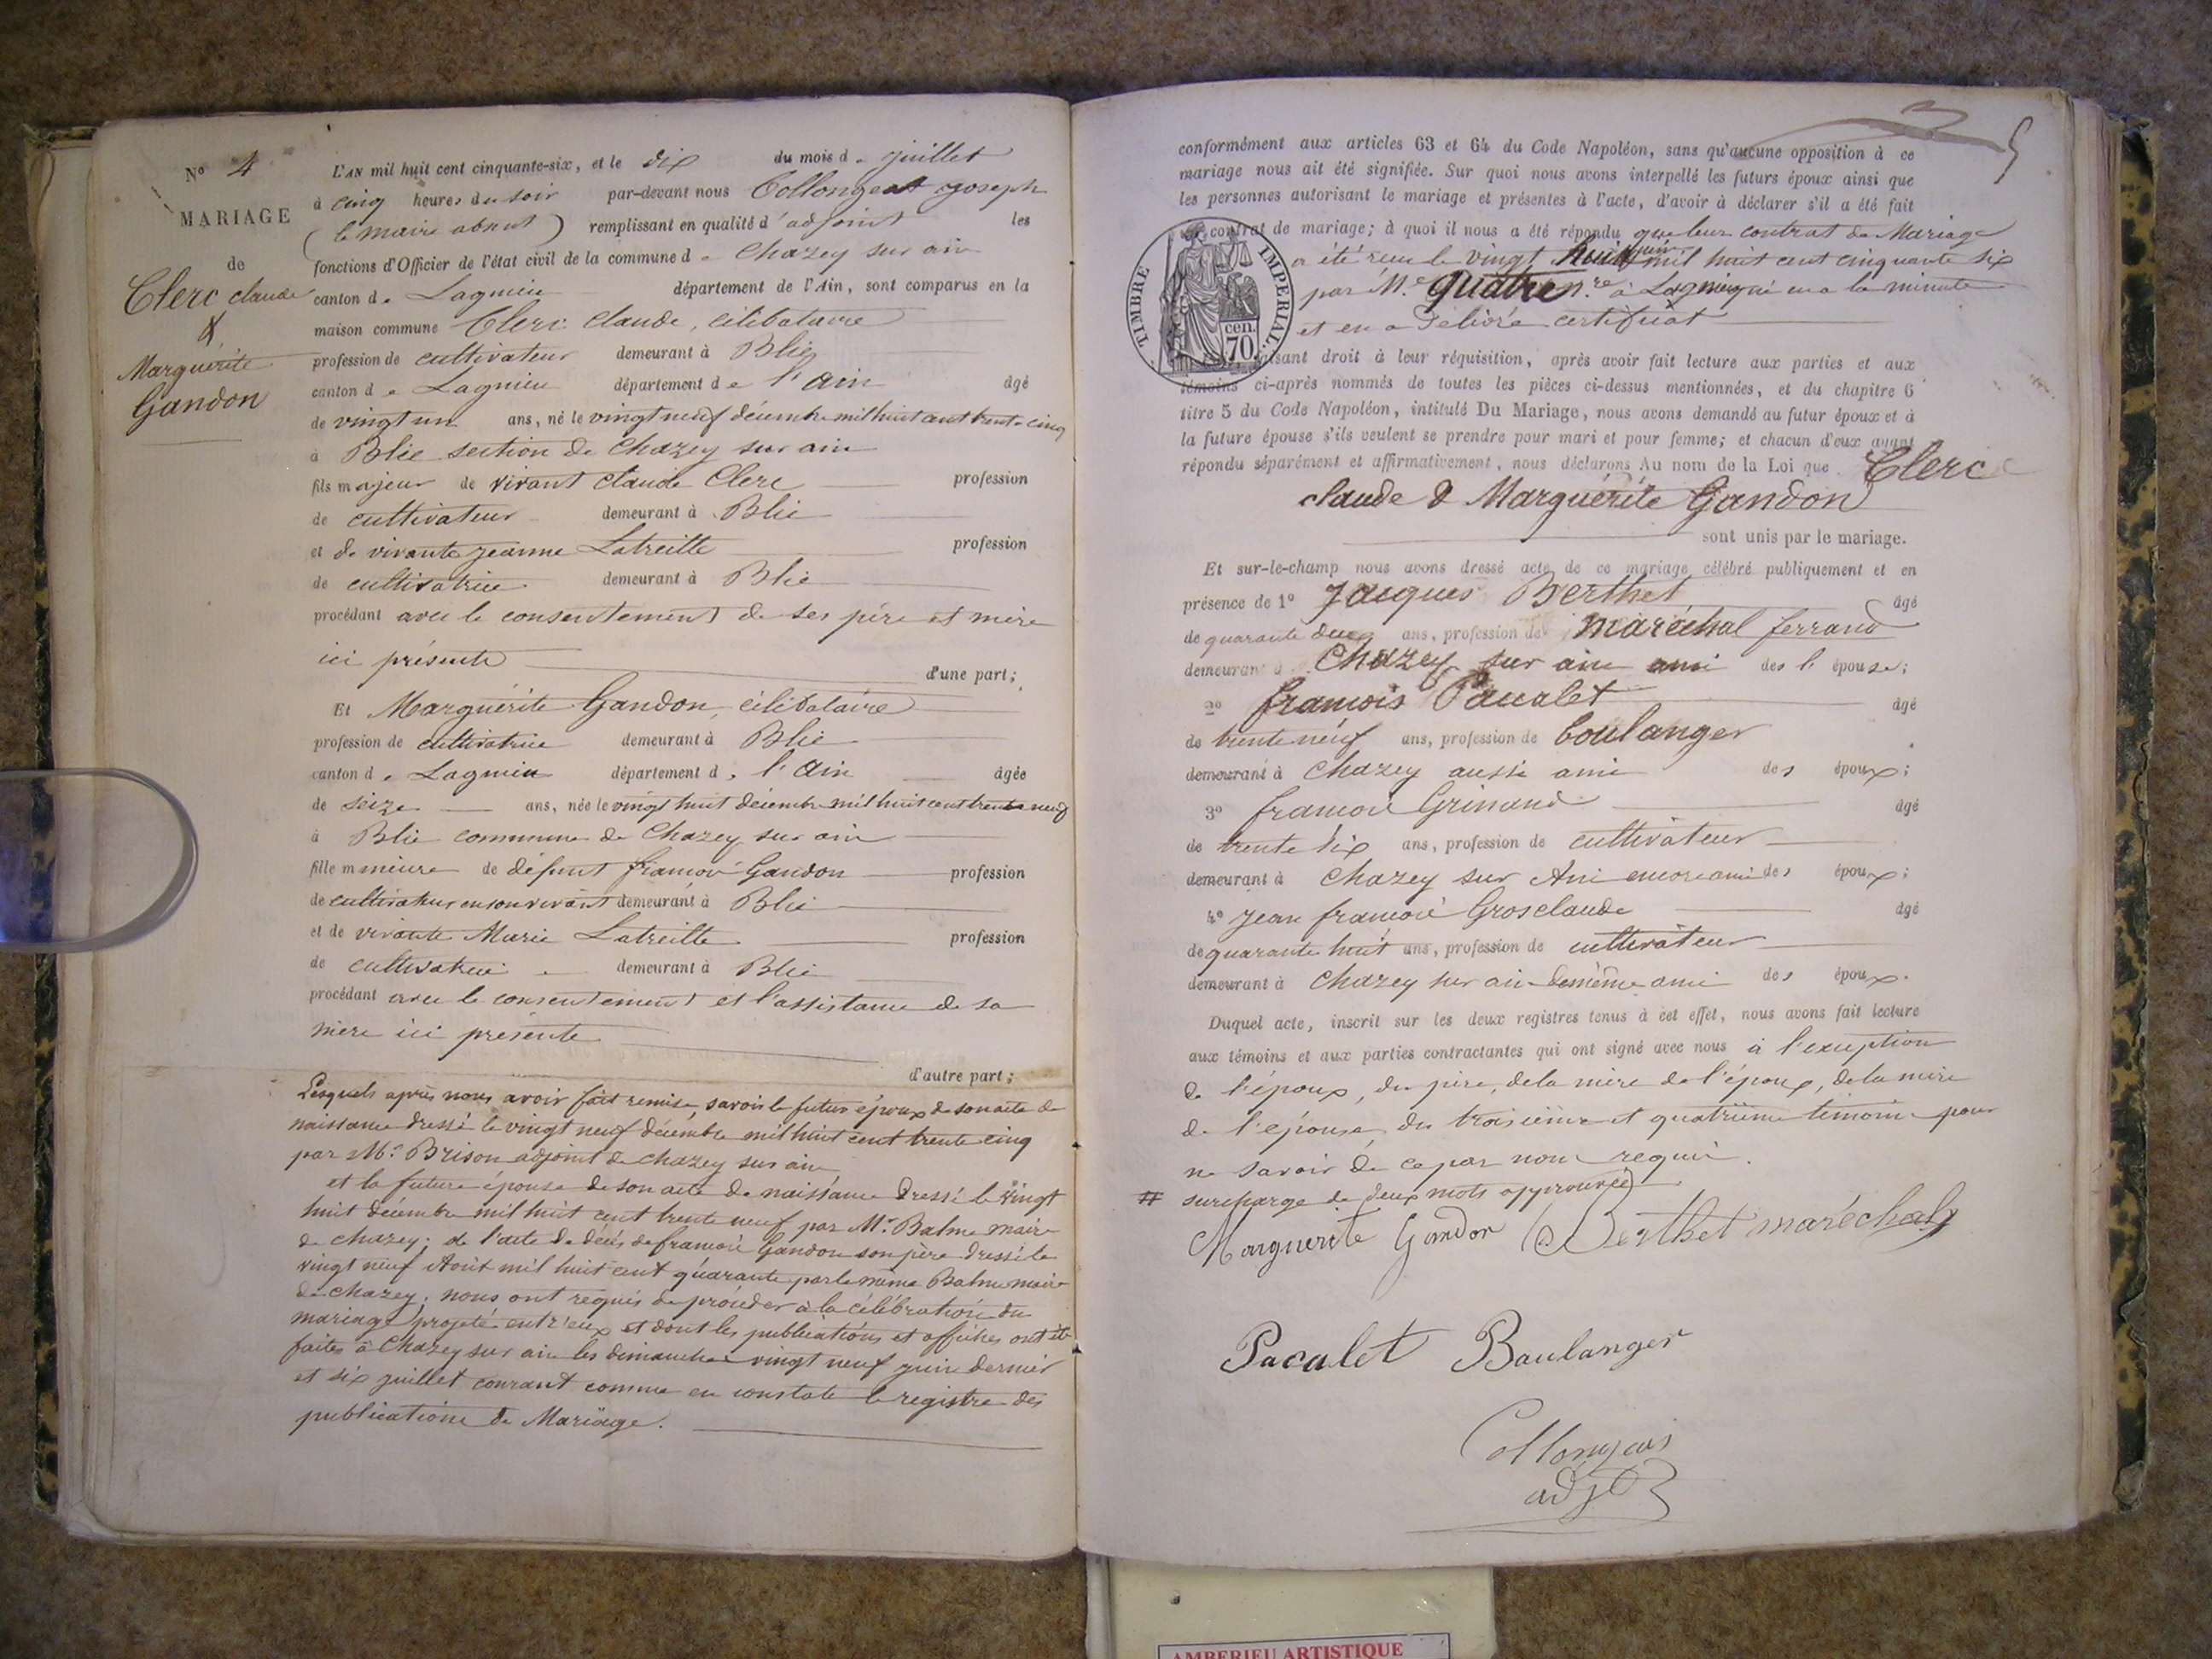 N° 4
MARIAGE
de
Clerc claude
&
Marguérite
Gandon
L'AN mil huit cent cinquante-six, et le dix du mois de juillet
à cinq heures du soir par-devant nous Collongeat Joseph
(le maire absent) remplissant en qualité d'adjoint les
fonctions d'Officier de l'état civil de la commune de Chazey sur ain
canton de Lagnieu département de l'Ain, sont comparus en la
maison commune Clerc claude, célibataire
profession de cultivateur demeurant à Blie
canton de Lagnieu département de l'ain âgé
de vingt un ans, né le vingt neuf décembre mil huit cent trente cinq
à Blie section de Chazey sur ain
fils majeur de vivant claude Clerc profession
de cultivateur demeurant à Blie
et de vivante jeanne Latreille profession
de cultivatrice demeurant à Blie
procédant avec le consentement de ses père et mère
ici présents
d'une part;
Et Marguérite Gandon, célibataire
profession de cultivatrice demeurant à Blie
canton de Lagnieu département de l'ain âgée
de seize ans, née le vingt huit décembre mil huit cent trente neuf
à Blie commune de Chazey sur ain
fille mineure de défunt françois Gandon profession
de cultivateur en son vivant demeurant à Blie
et de vivante Marie Latreille profession
de cultivatrice demeurant à Blie
procédant avec le consentement et l'assistance de sa
mère ici présente
d'autre part;
Lesquels après nous avoir fait remise, savoir le futur époux de son acte de
naissance dressé le vingt neuf décembre mil huit cent trente cinq
par Mr Brison adjoint de chazey sur ain
et la future épouse de son acte de naissance dressé le vingt
huit décembre mil huit cent trente neuf par Mr Balme maire
de chazey; de l'acte de décès de françois Gandon son père dressé le
vingt neuf Août mil huit cent quarante par le même Balme maire
de chazey; nous ont requis de procéder à la célébration du
mariage projeté entr'eux et dont les publications et affiches ont été
faites à Chazey sur ain les dimanches vingt neuf juin dernier
et six juillet courant comme en constate le registre des
publications de Mariage.
conformément aux articles 63 et 64 du Code Napoléon, sans qu'aucune opposition à ce
mariage nous ait été signifiée. Sur quoi nous avons interpellé les futurs époux ainsi que
les personnes autorisant le mariage et présentes à l'acte, d'avoir à déclarer s'il a été fait
un contrat de mariage; à quoi il nous a été répondu que leur contrat de Mariage
a été reçu le vingt huit juin mil huit cent cinquante six
par Me Quatre nre à Lagnieu qui en a la minute
et en a délivré certificat
TIMBRE IMPERIAL
70 cen.
faisant droit à leur réquisition, après avoir fait lecture aux parties et aux
témoins ci-après nommés de toutes les pièces ci-dessus mentionnées, et du chapitre 6
titre 5 du Code Napoléon, intitulé Du Mariage, nous avons demandé au futur époux et à
la future épouse s'ils veulent se prendre pour mari et pour femme; et chacun d'eux ayant
répondu séparément et affirmativement, nous déclarons Au nom de la Loi que Clerc
claude & Marguérite Gandon
sont unis par le mariage.
Et sur-le-champ nous avons dressé acte de ce mariage célébré publiquement et en
présence de 1° Jacques Berthet âgé
de quarante deux ans, profession de maréchal ferrand
demeurant à Chazey sur ain ami de l'épouse;
2° françois Pacalet âgé
de trente neuf ans, profession de boulanger
demeurant à Chazey aussi ami des époux;
3° françois Grinand âgé
de trente six ans, profession de cultivateur
demeurant à Chazey sur Ain encore ami des époux;
4° jean françois Grosclaude âgé
de quarante huit ans, profession de cultivateur
demeurant à Chazey sur ain de même ami des époux.
Duquel acte, inscrit sur les deux registres tenus à cet effet, nous avons fait lecture
aux témoins et aux parties contractantes qui ont signé avec nous à l'exception
de l'époux, du père, de la mère de l'époux, de la mère
de l'épouse, des troisième et quatrième témoins pour
ne savoir de ce par nous requis.
# surcharge de deux mots approuvée
Marguerite Gandon Berthet maréchal
Pacalet Boulanger
Collongeas
adjt
AMBERIEU ARTISTIQUE